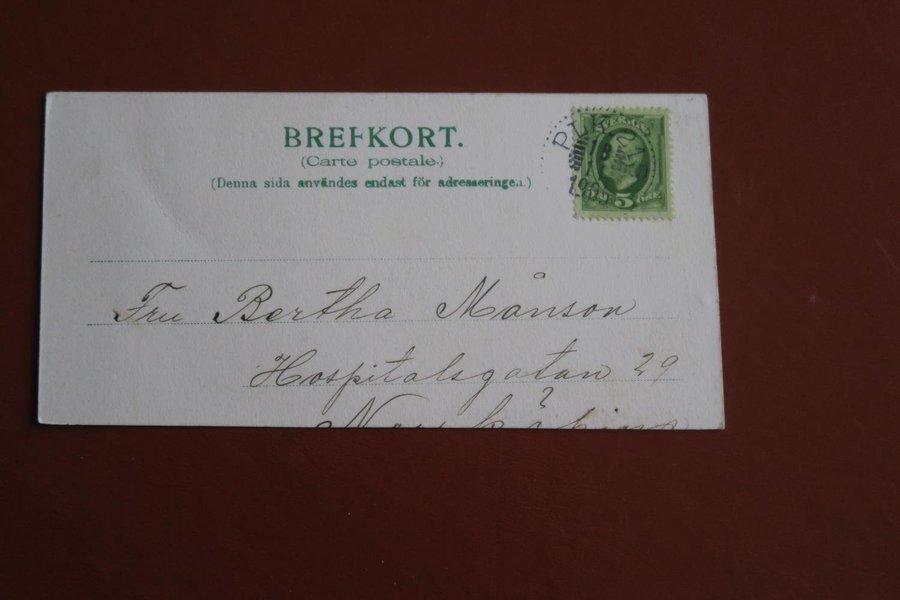 BREFKORT.
(Carte postale.)
(Denna sida användes endast för adresseringen.)
SVERIGE
1905
5 ÖRE
Fru Bertha Månson
Hospitalsgatan 29
Norrköping